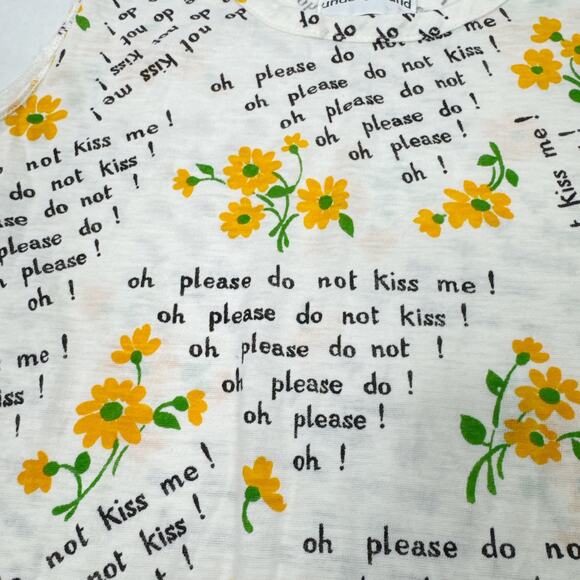 do do do
not kiss me !
oh please do not kiss !
oh please do not !
oh please do !
oh please !
oh !
not kiss me !
do not kiss !
do not !
please do !
please !
oh !
kiss me !
oh please do not kiss me !
oh please do not kiss !
oh please do not !
oh please do !
oh please !
oh !
me !
!
!
not kiss me !
not kiss !
oh please do no